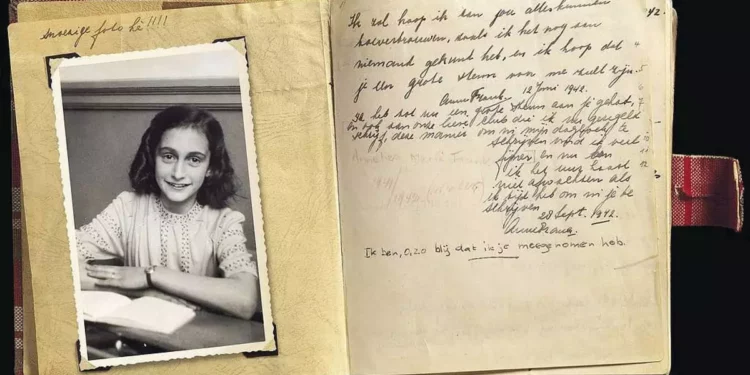 Snoezige foto hè!!!!
42.
Ik zal hoop ik aan jou alles kunnen
toevertrouwen, zoals ik het nog aan
niemand gekund heb, en ik hoop dat
je een grote steun voor me zult zijn.
Anne Frank. 12 Juni 1942.
Ik heb tot nu een grote steun aan je gehad,
en ook aan onze lieve club die ik nu geregeld
schrijf, deze manier om in mijn dagboek te
schrijven vind ik veel
fijner en nu kan
ik het uur haast
niet afwachten als
ik tijd heb om in je te
schrijven.
28 Sept. 1942.
Anne Frank.
Ik ben, O, zo blij dat ik je meegenomen heb.